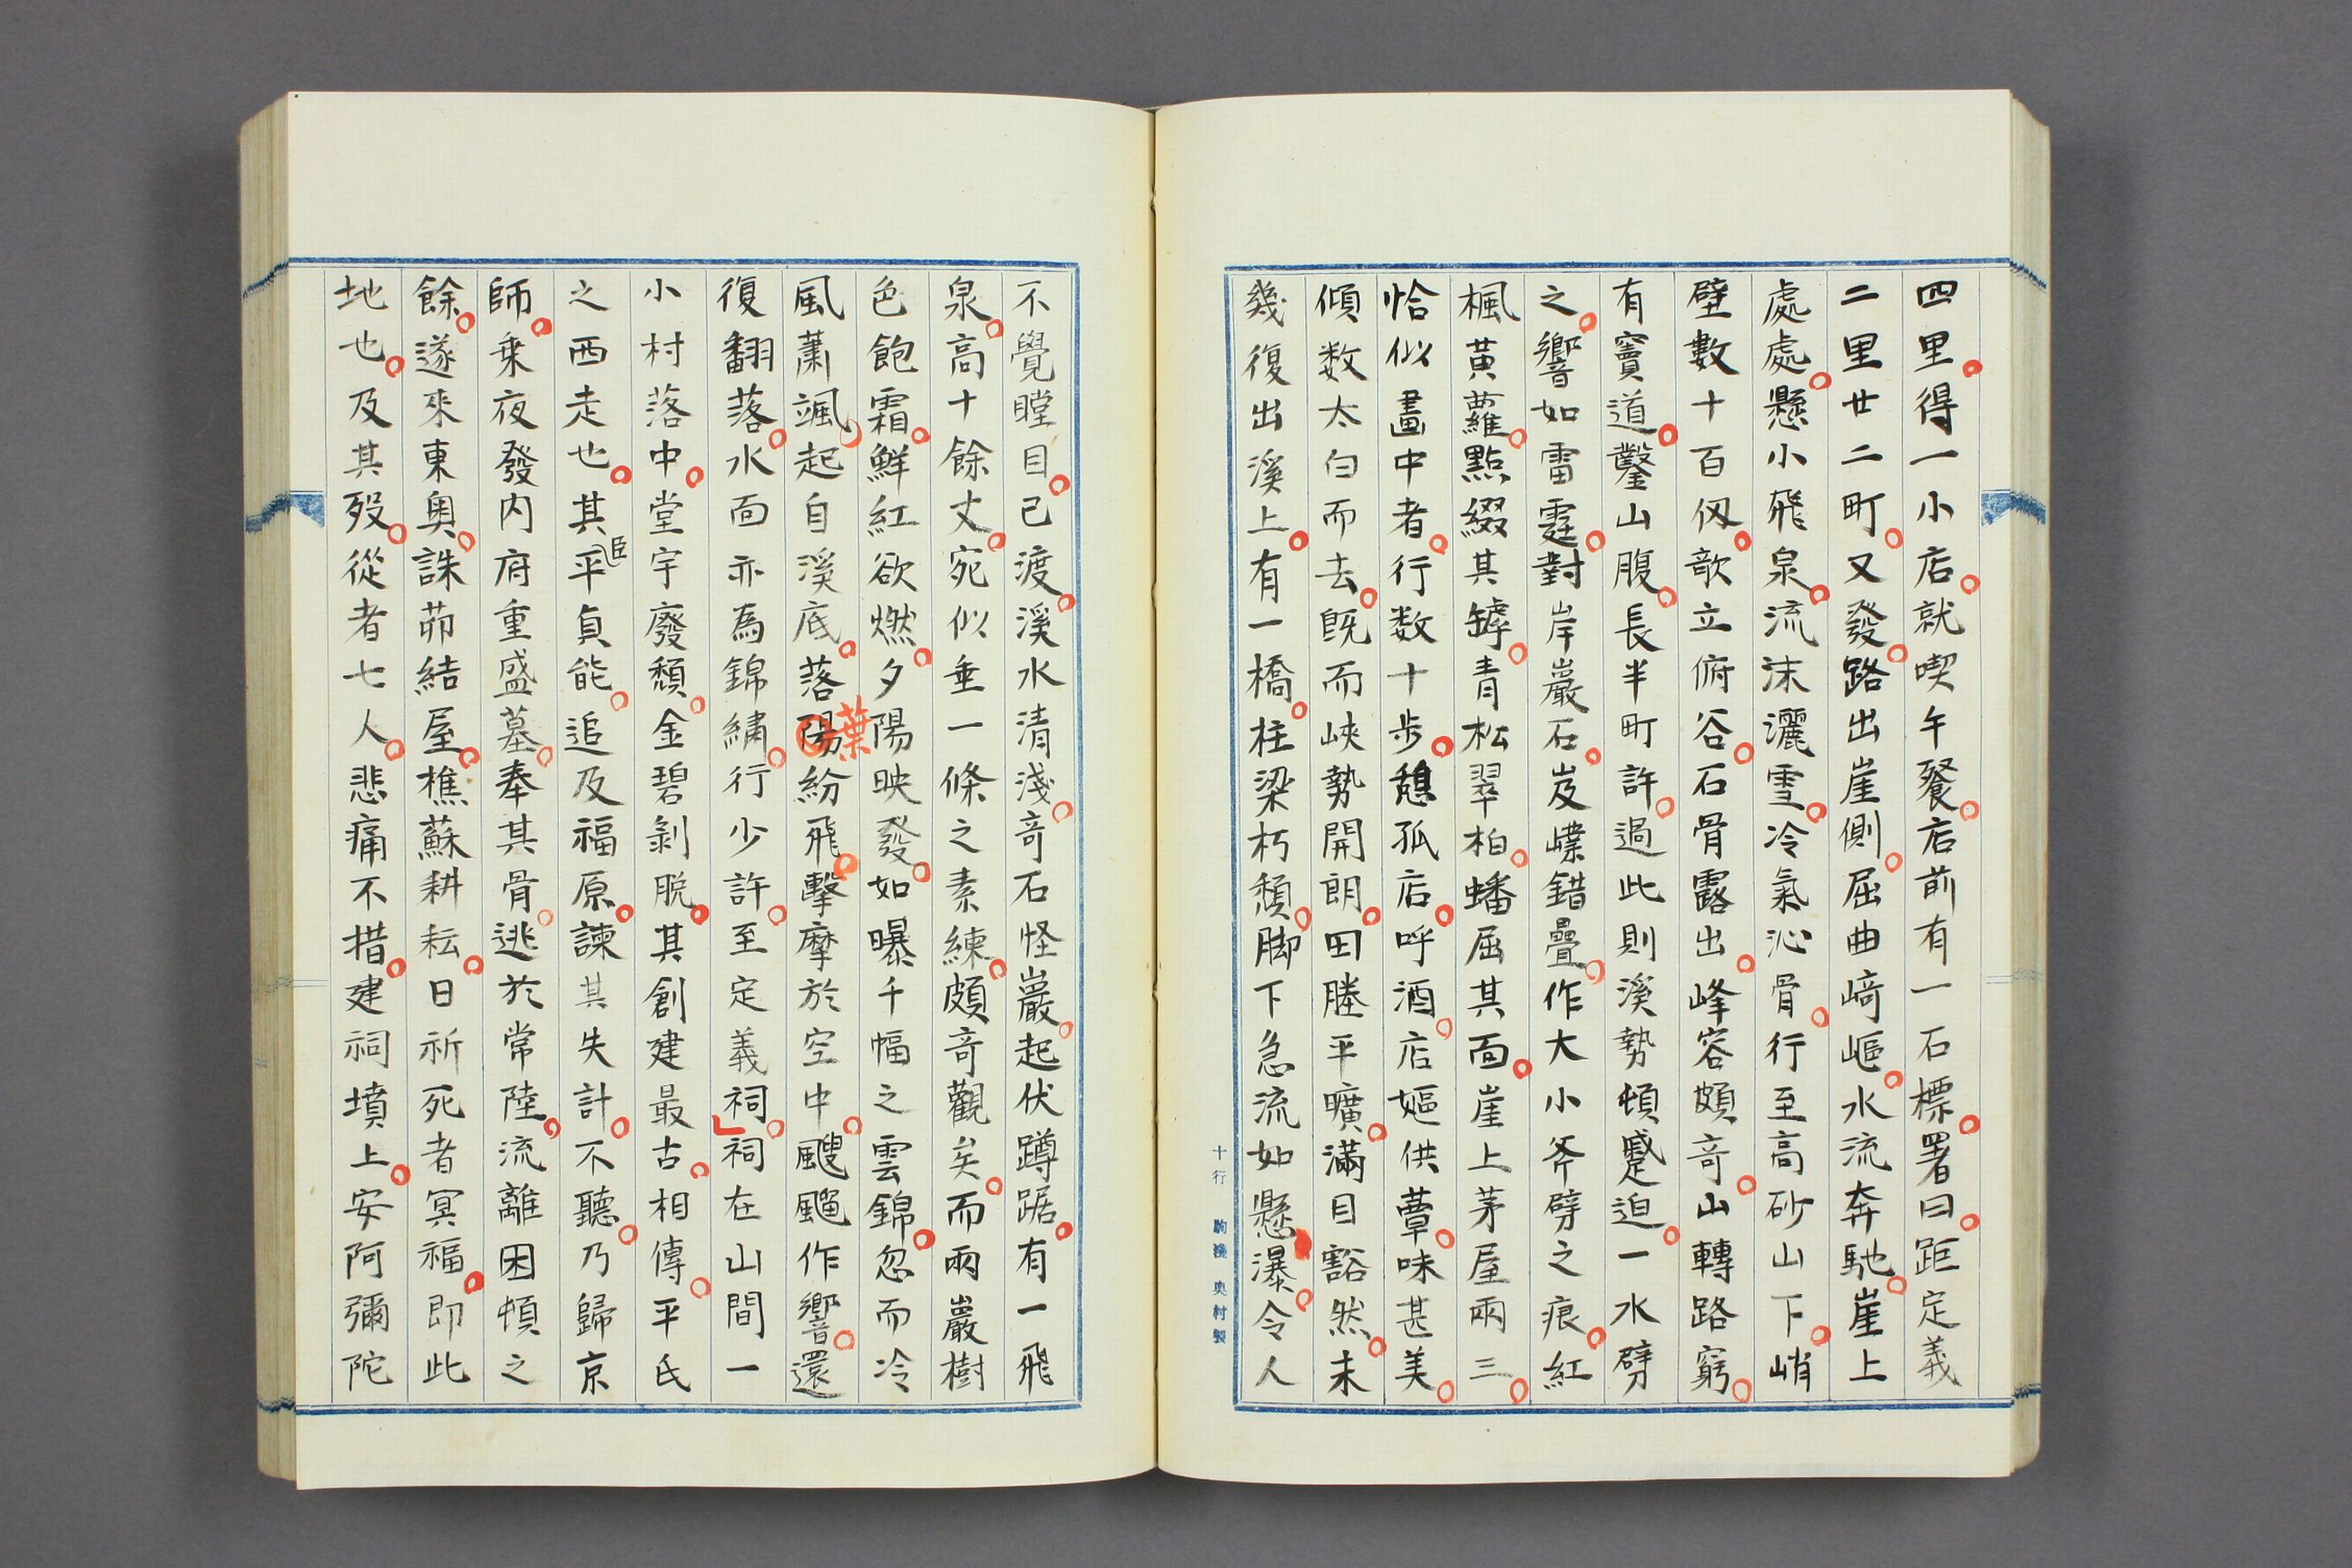 四里得一小店就喫午餐店前有一石標署曰距定義
二里廿二町又發路出崖側屈曲﨑嶇水流奔馳崖上
處處懸小飛泉流沫灑雪冷氣沁骨行至高砂山下峭
壁數十百仭欹立俯谷石骨露出峰容頗竒山轉路窮
有竇道鑿山腹長半町許過此則溪勢頓蹙迫一水劈
之響如雷霆對岸巖石岌嶫錯疊作大小斧劈之痕紅
楓黄蘿點綴其罅青松翠柏蟠屈其面崖上茅屋兩三
恰似畫中者行数十步憩孤店呼酒店嫗供蕈味甚美
傾数太白而去既而峽勢開朗田塍平曠滿目豁然未
幾復出溪上有一橋柱梁朽頹脚下急流如懸瀑令人
十行 駒獲 奥村製
不覺瞠目已渡溪水清淺竒石怪巖起伏蹲踞有一飛
泉高十餘丈宛似垂一條之素練頗竒觀矣而兩巖樹
色飽霜鮮紅欲燃夕陽映發如曝千幅之雲錦忽而冷
風蕭颯起自溪底落陽紛飛擊摩於空中颼飀作響還
葉
復翻落水面亦為錦繡行少許至定義祠祠在山間一
小村落中堂宇廢頹金碧剝脱其創建最古相傳平氏
之西走也其平貞能追及福原諫其失計不聽乃歸京
臣
師乗夜發内府重盛墓奉其骨逃於常陸流離困頓之
餘遂來東奥誅茆結屋樵蘇耕耘日祈死者冥福即此
地也及其歿從者七人悲痛不措建祠墳上安阿彌陀